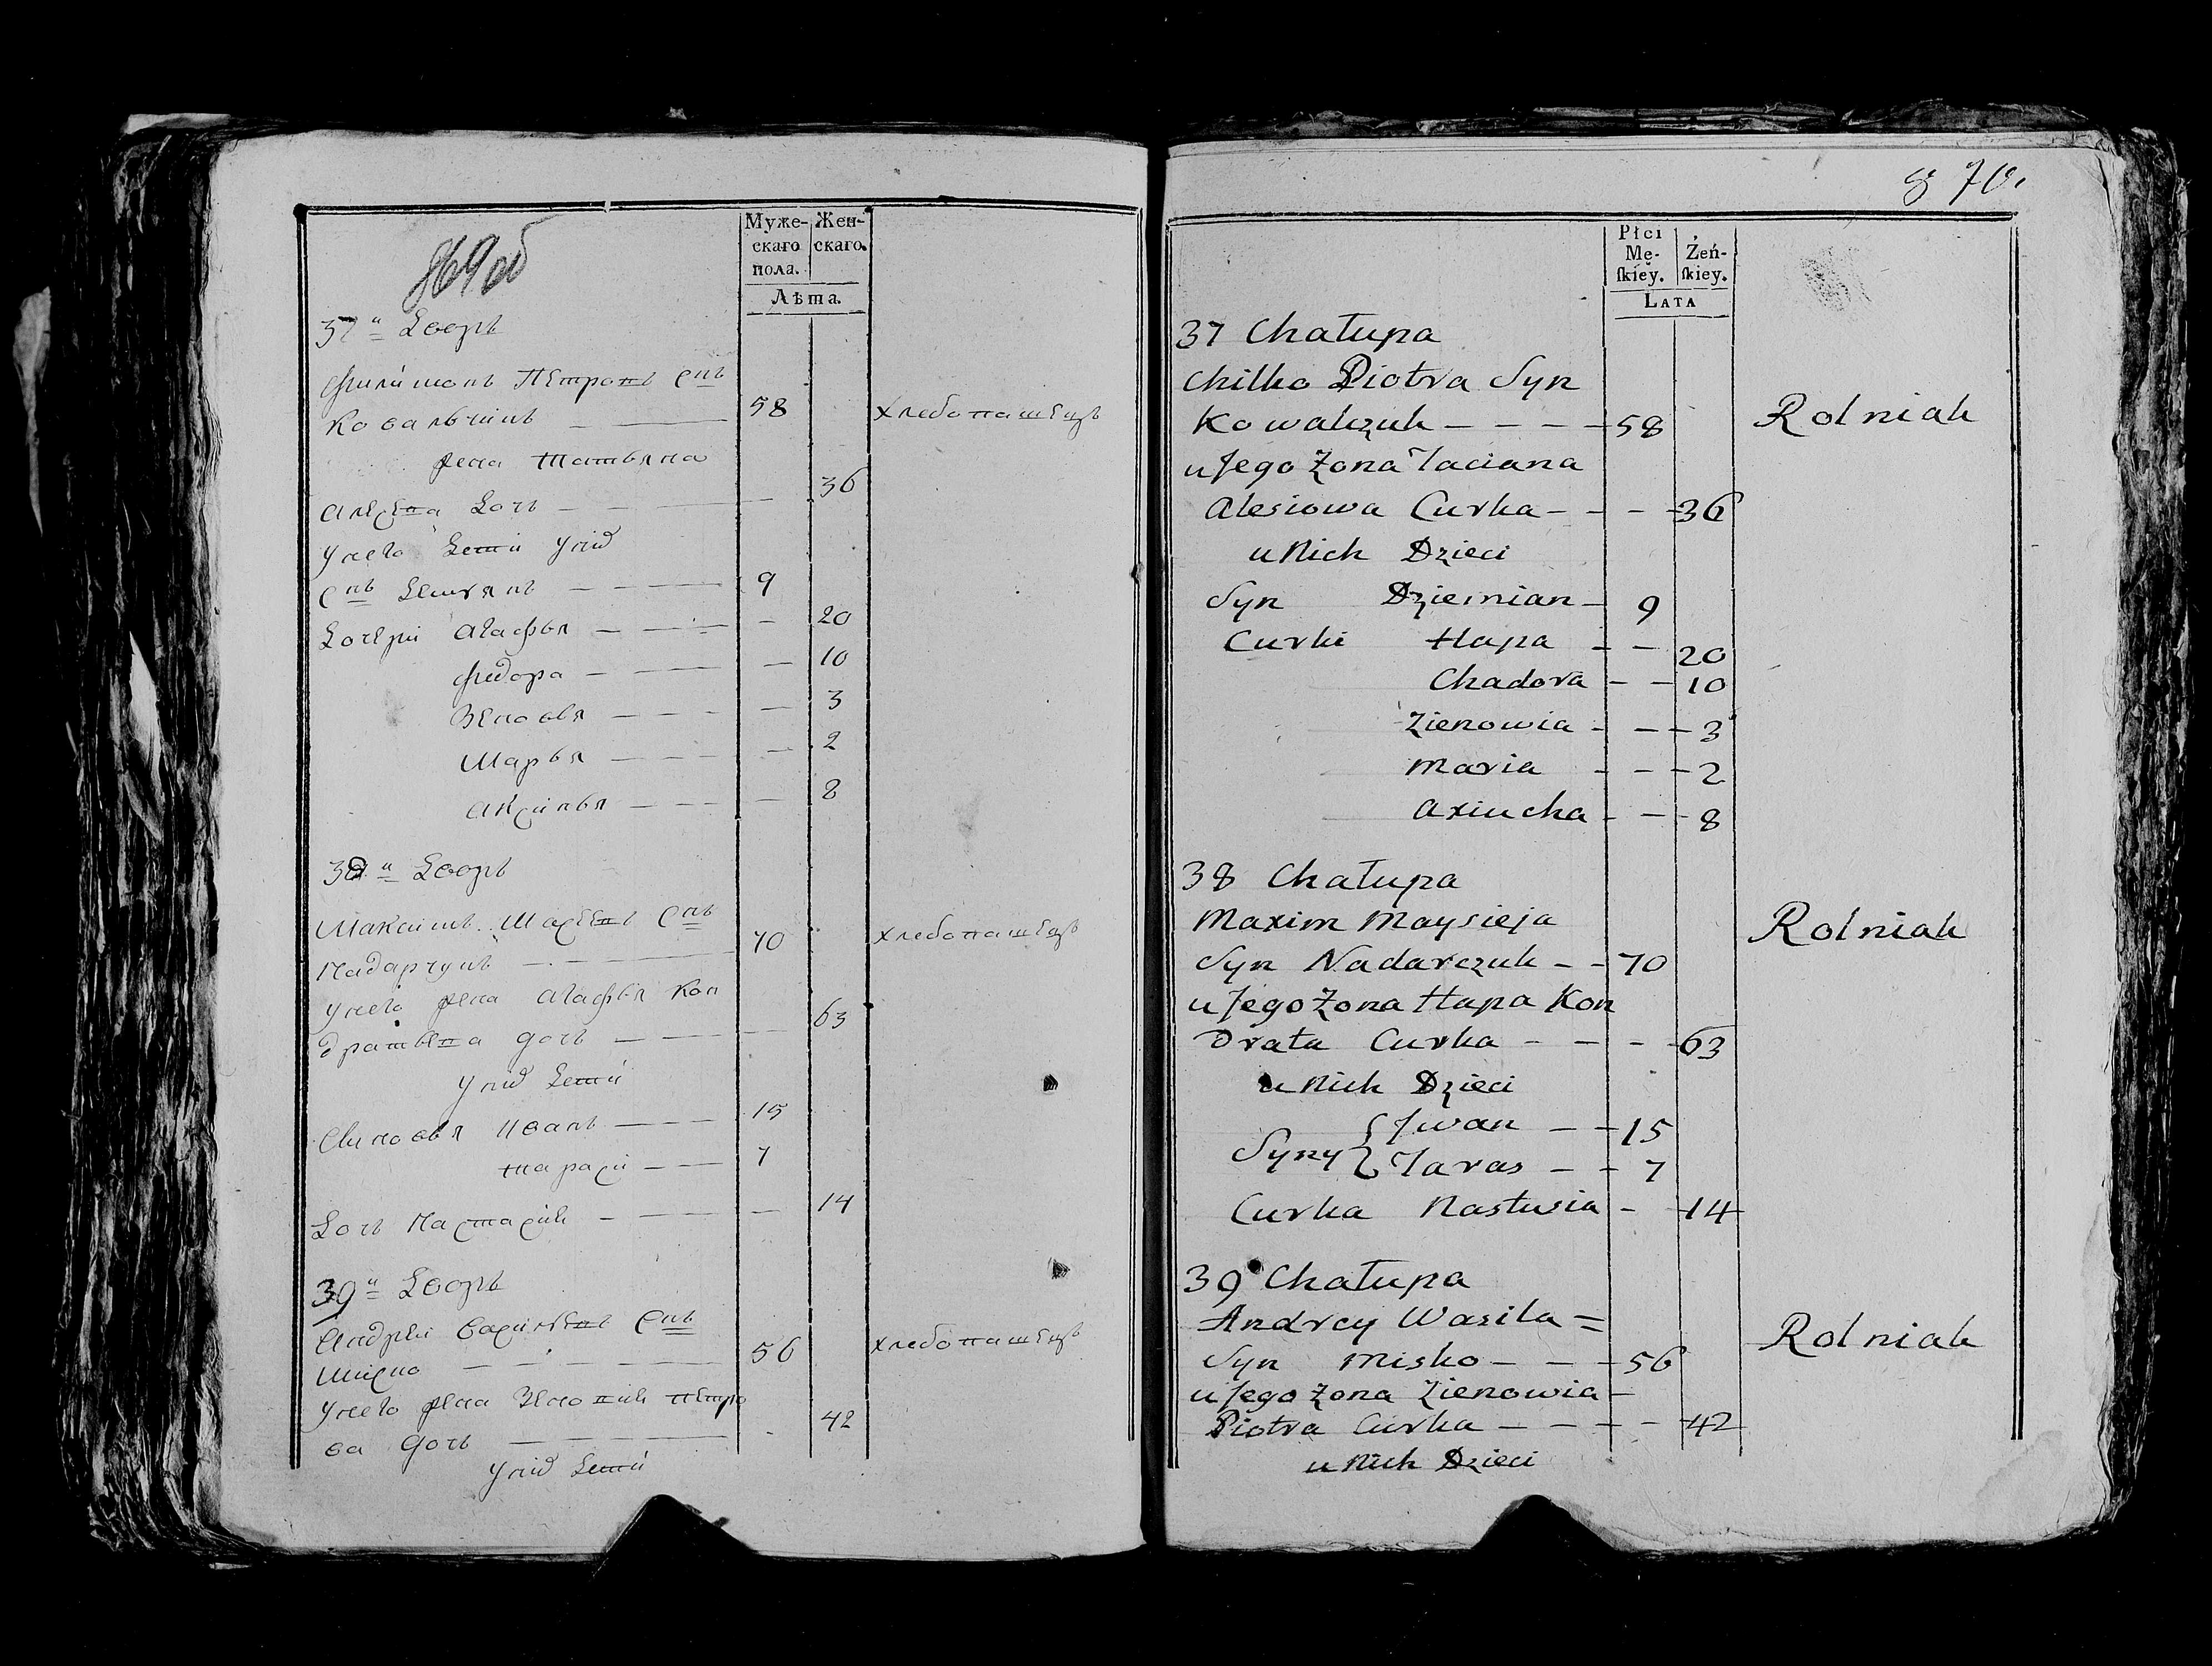 869 об
Муже-
скаго
пола.
Жен-
скаго.
Лѣта.
37й Дворъ
Филимонъ Петровъ Снъ
Ковальчикъ — — 58 Хлебопашецъ
жена Татьяна
Алексева Дочь — — 36
Унего Дети Унихъ
Снъ Демьянъ — — — 9
Дочери Агафья — — — 20
Федора — — — 10
Зеновья — — — 3
Марья — — — 2
Аксинья — — — 8
38й Дворъ
Максимъ Марсеевъ Снъ
Надарчукъ — — 70 Хлебопашецъ
Унего жена Агафья Кон
дратьева дочь — — — 63
Унихъ Дети
Сыновья Иванъ — — — 15
Тараси — — 7
Дочь Настасия — — — 14
39й Дворъ
Андреи Васильевъ Снъ
Миско — — — 56 Хлебопашецъ
Унего жена Зеновия Петро
ва дочь — — — 42
Унихъ Дети
870.
Płci
Mę-
ſkiey.
Żeń-
ſkiey.
Lata
37 Chałupa
Chilko Piotra Syn
Kowalczuk — — — — 58 Rolniak
u Jego Żona Taciana
Alesiowa Curka — — — 36
u Nich Dzieci
Syn Dziemian — 9
Curki Hapa — — 20
Chadora — — 10
Zienowia — — — 3
Maria — — — 2
Axiucha — — 8
38 Chałupa
Maxim Maysieja
Syn Nadarczuk — — 70 Rolniak
u Jego Żona Hapa Kon
Drata Curka — — — — 63
u Nich Dzieci
Syny { Jwan — — 15
Taras — — 7
Curka Nastusia — 14
39 Chałupa
Andrey Wasila =
Syn Misko — — — 56 Rolniak
u Jego Żona Zienowia —
Piotra Curka — — — — 42
u Nich Dzieci